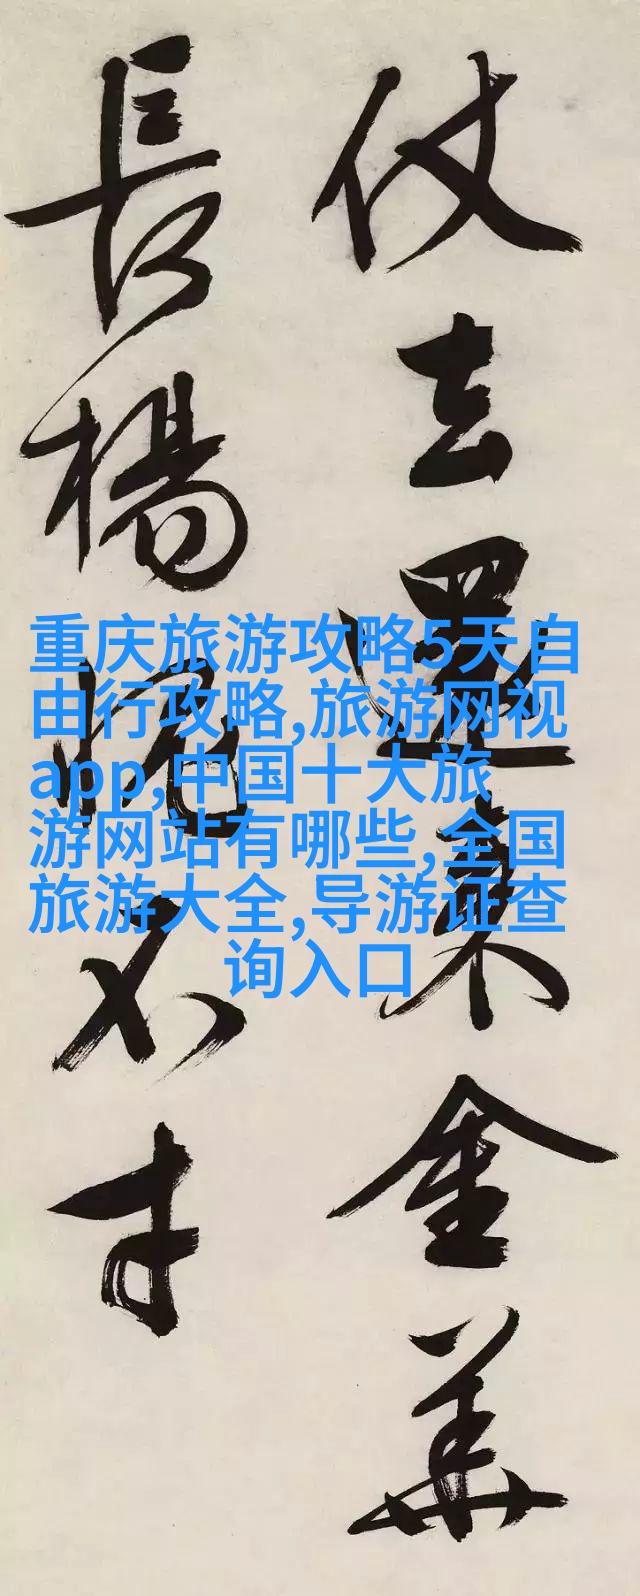 仗去還金華
長楊不才
重庆旅游攻略5天自
由行攻略,旅游网视
app,中国十大旅
游网站有哪些,全国
旅游大全,导游证查
询入口